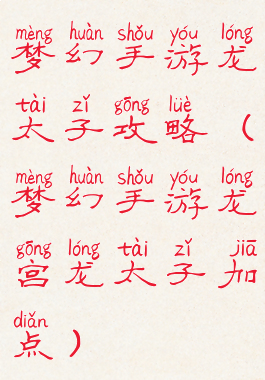 mèng huàn shǒu yóu lóng
梦幻手游龙
tài zǐ gōng lüè
太子攻略（
mèng huàn shǒu yóu lóng
梦幻手游龙
gōng lóng tài zǐ jiā
宫龙太子加
diǎn
点）